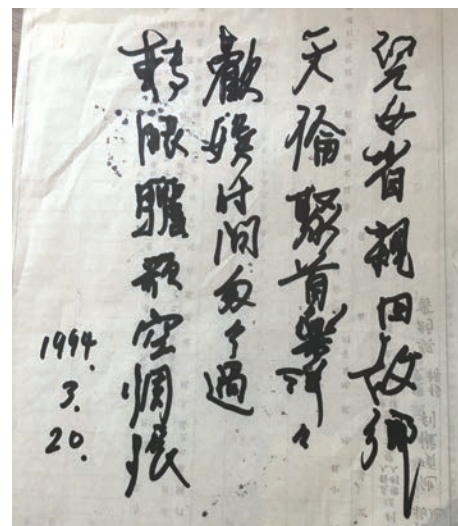 兒女省親回故鄉
天倫聚首樂洋々
歡娛时间匆々過
轉眼驪歌空惆悵
1994.
3.
20.